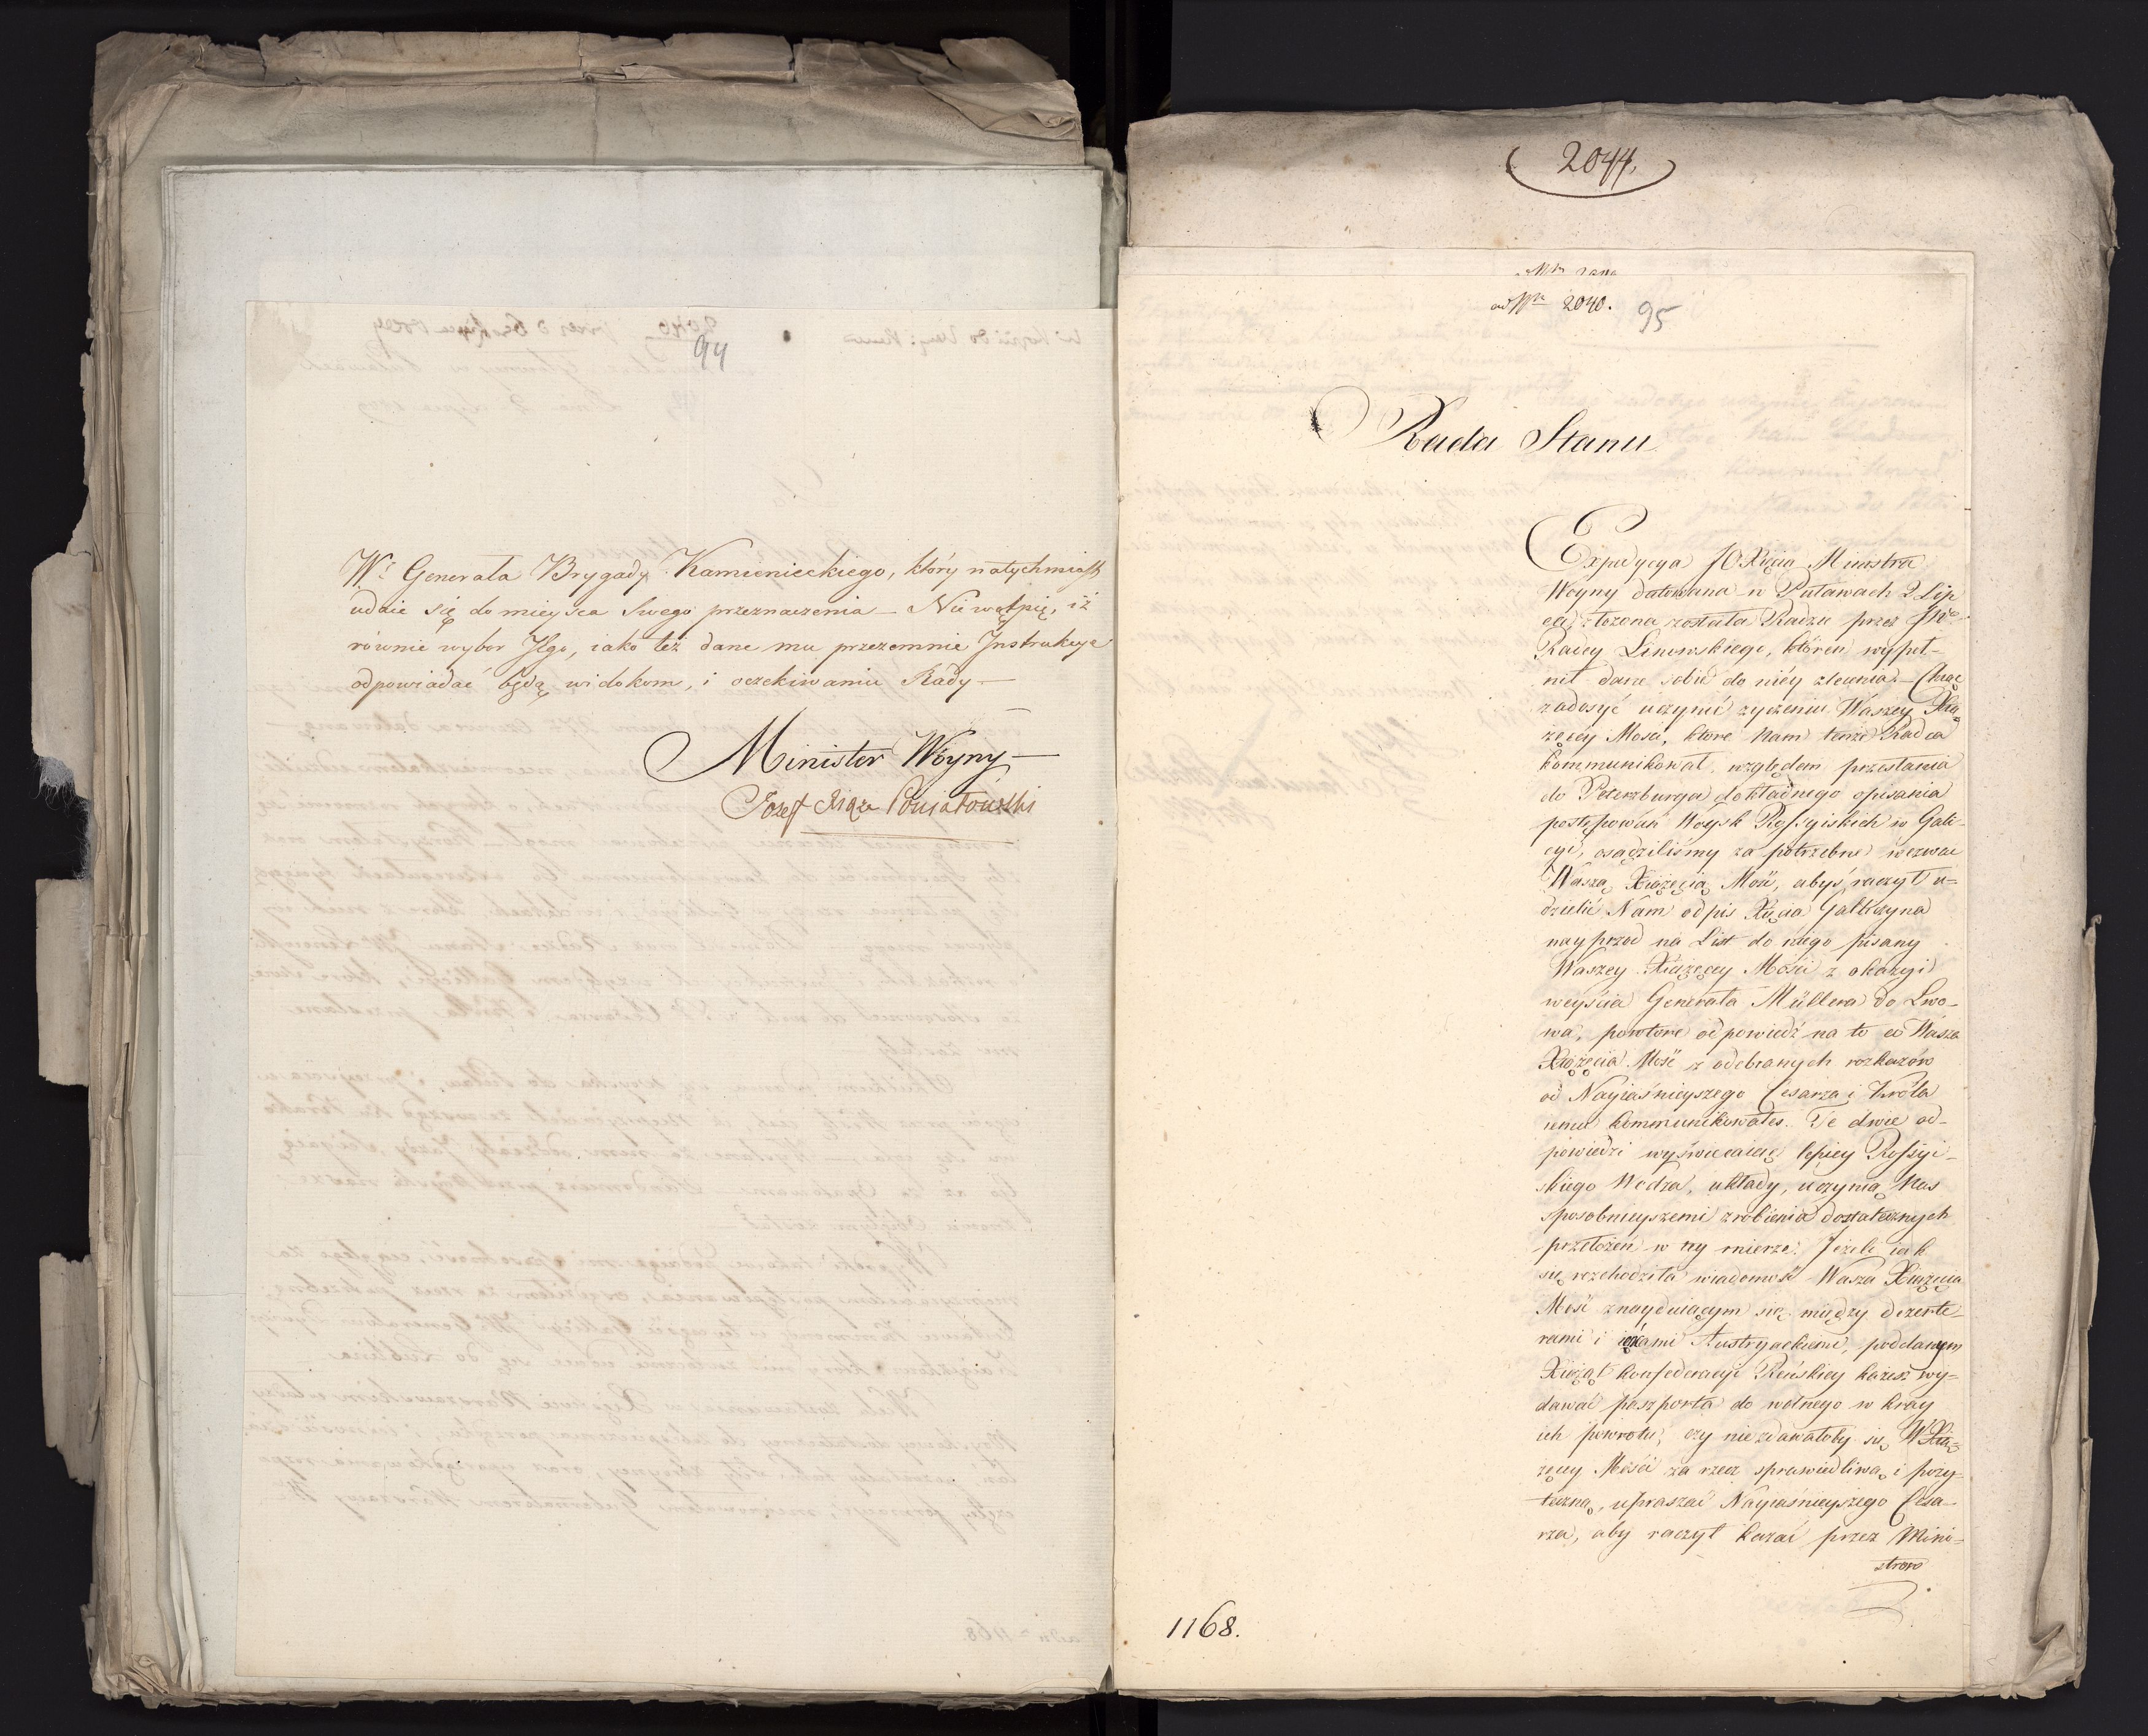 94
Wº Generała Brygady Kamienieckiego, który natychmiast
udaie się do mieysca Swego przeznaczenia — Nie wątpię, iż
równie wybor Jego, iako też dane mu przezemnie Instrukcye
odpowiadać będą widokom, i oczekiwaniu Rady —
Minister Woyny —
Jozef Xiąze Poniatowski
2044.
ad Nr 2040.
95
Rada Stanu
Expedycya JO Xięcia Ministra
Woyny datowana w Puławach 2 Lip
ca, złożona została Radzie przez
Radcy Linowskiego, któren wypeł-
nił dane sobie do niéy zlecenia. — Chcąc
zadosyć uczynić życzeniu Waszey Xią
żęcey Mości, które Nam tenże Radca
kommunikował, względem przesłania
do Peterzburga dokładnego opisania
postępowań Woysk Rossyiskich w Gali-
cyi, osądziliśmy za potrzebne wezwać
Waszą Xiążęcią Mość, abyś raczył u-
dzielić Nam odpis Xięcia Galliczyna
nayprzod na List do niego pisany
Waszey Xiążęcey Mości z okazyi
weyścia Generała Müllera do Lwo-
wa, powtore odpowiedź na to co Wasza
Xiążęcia Mość z odebranych rozkazów
od Nayiaśnieyszego Cesarza i Króla
iemu kommunikowałeś. Te dwie od-
powiedzi wyświecaiąc lepiey Rossyi-
skiego Wodza, układy, uczynią Nas
sposobnieyszemi zrobienia dostatecznych
przełożeń w tey mierze. Jeżeli iak
się rozchodziła wiadomość Wasza Xiążęcia
Mość znayduiącym się między dezerte-
rami i ieńcami Austryackiemi, poddanym
Xiążąt konfederacyi Reńskiey każesz wy-
dawać paszporta do wolnego w kray
ich powrotu, czy nie zdawałoby się W. Xią-
żęcey Mości za rzecz sprawiedliwą i poży-
teczną, upraszać Nayiaśnieyszego Cesa-
rza, aby raczył kazać przez Mini-
strow
1168.